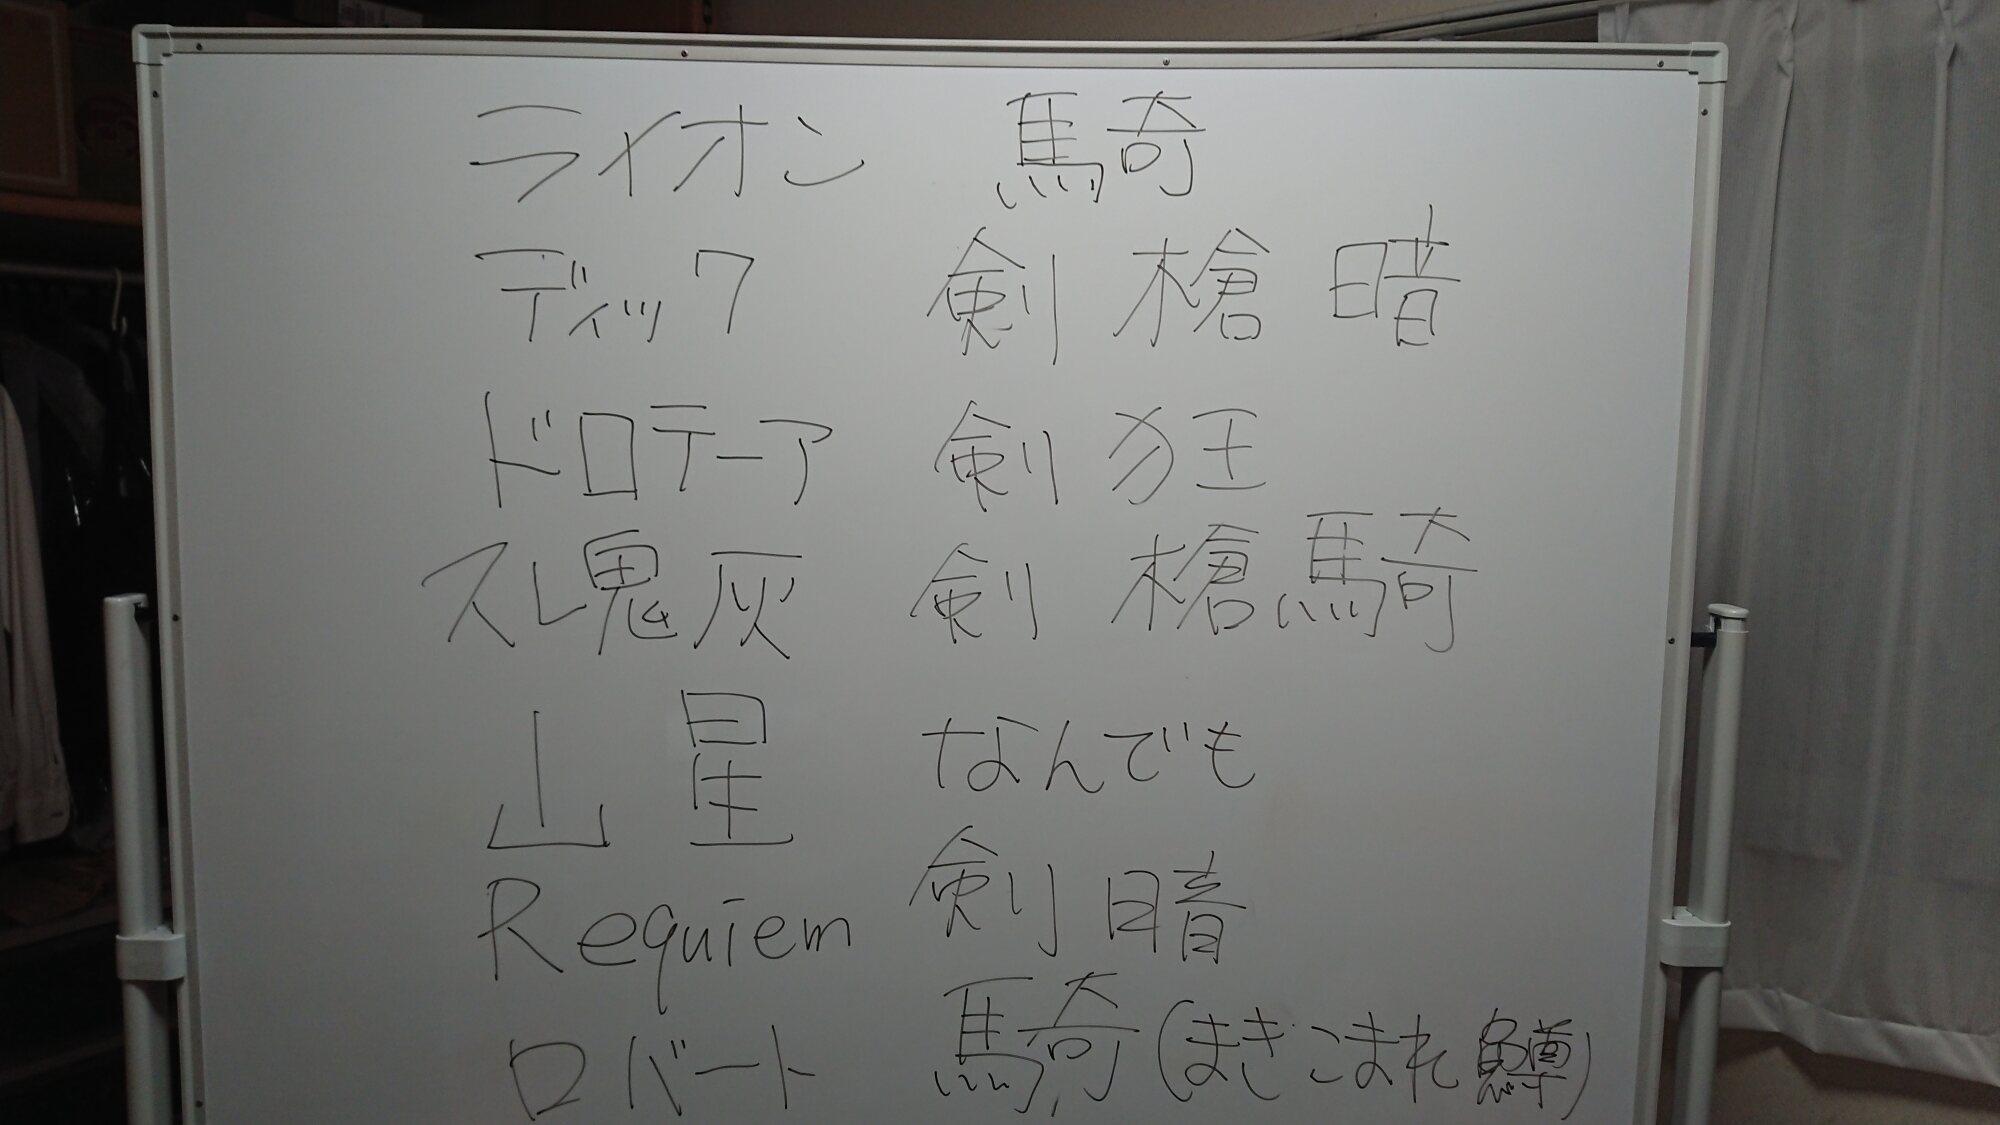 ライオン 騎
ディック 剣 槍 暗
ドロテーア 剣 狂
スレ鬼灰 剣 槍 騎
山星 なんでも
Requiem 剣 暗
ロバート 騎(まきこまれ鱒)